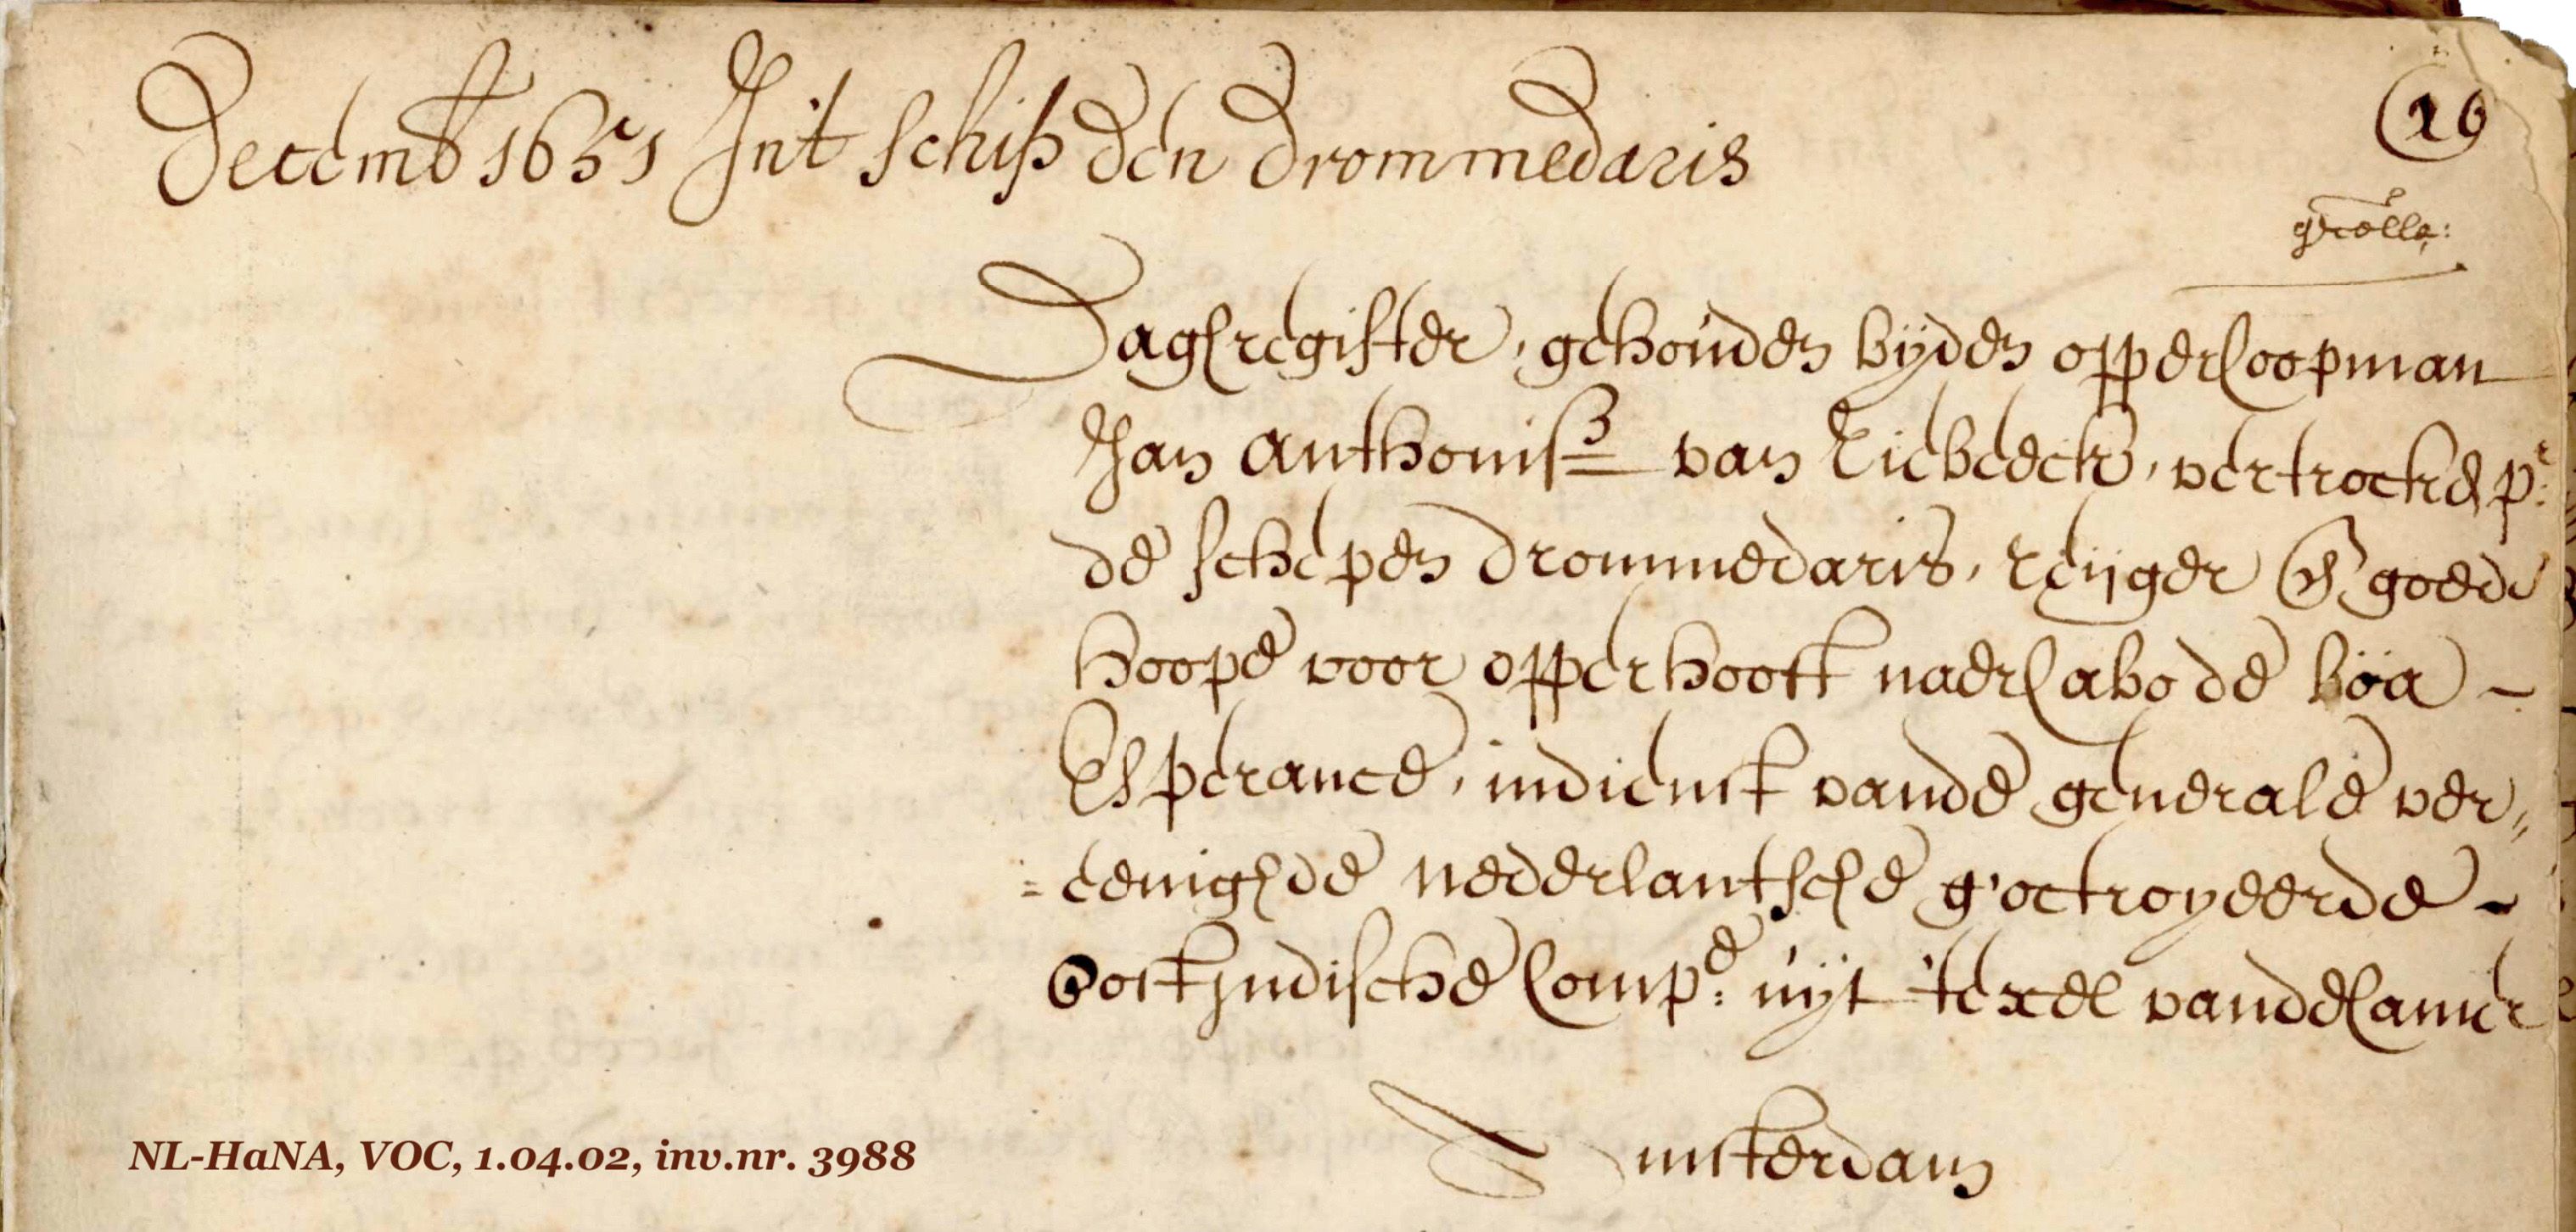 Decemb 1651 Int schip den Drommedaris
16
Daghregister, gehouden bÿden oppercoopman
Jan Anthonisz van Riebeeck, vertrocken pr:
de schepen Drommedaris, Reijger en goede
hoope voor opperhooft naer Cabo de boa –
Esperance, indienst vande generale ver„
=eenighde nederlantsche g'octroyeerde –
Oostjndische Compe: uÿt texel vande Camer
Amsterdam
NL-HaNA, VOC, 1.04.02, inv.nr. 3988